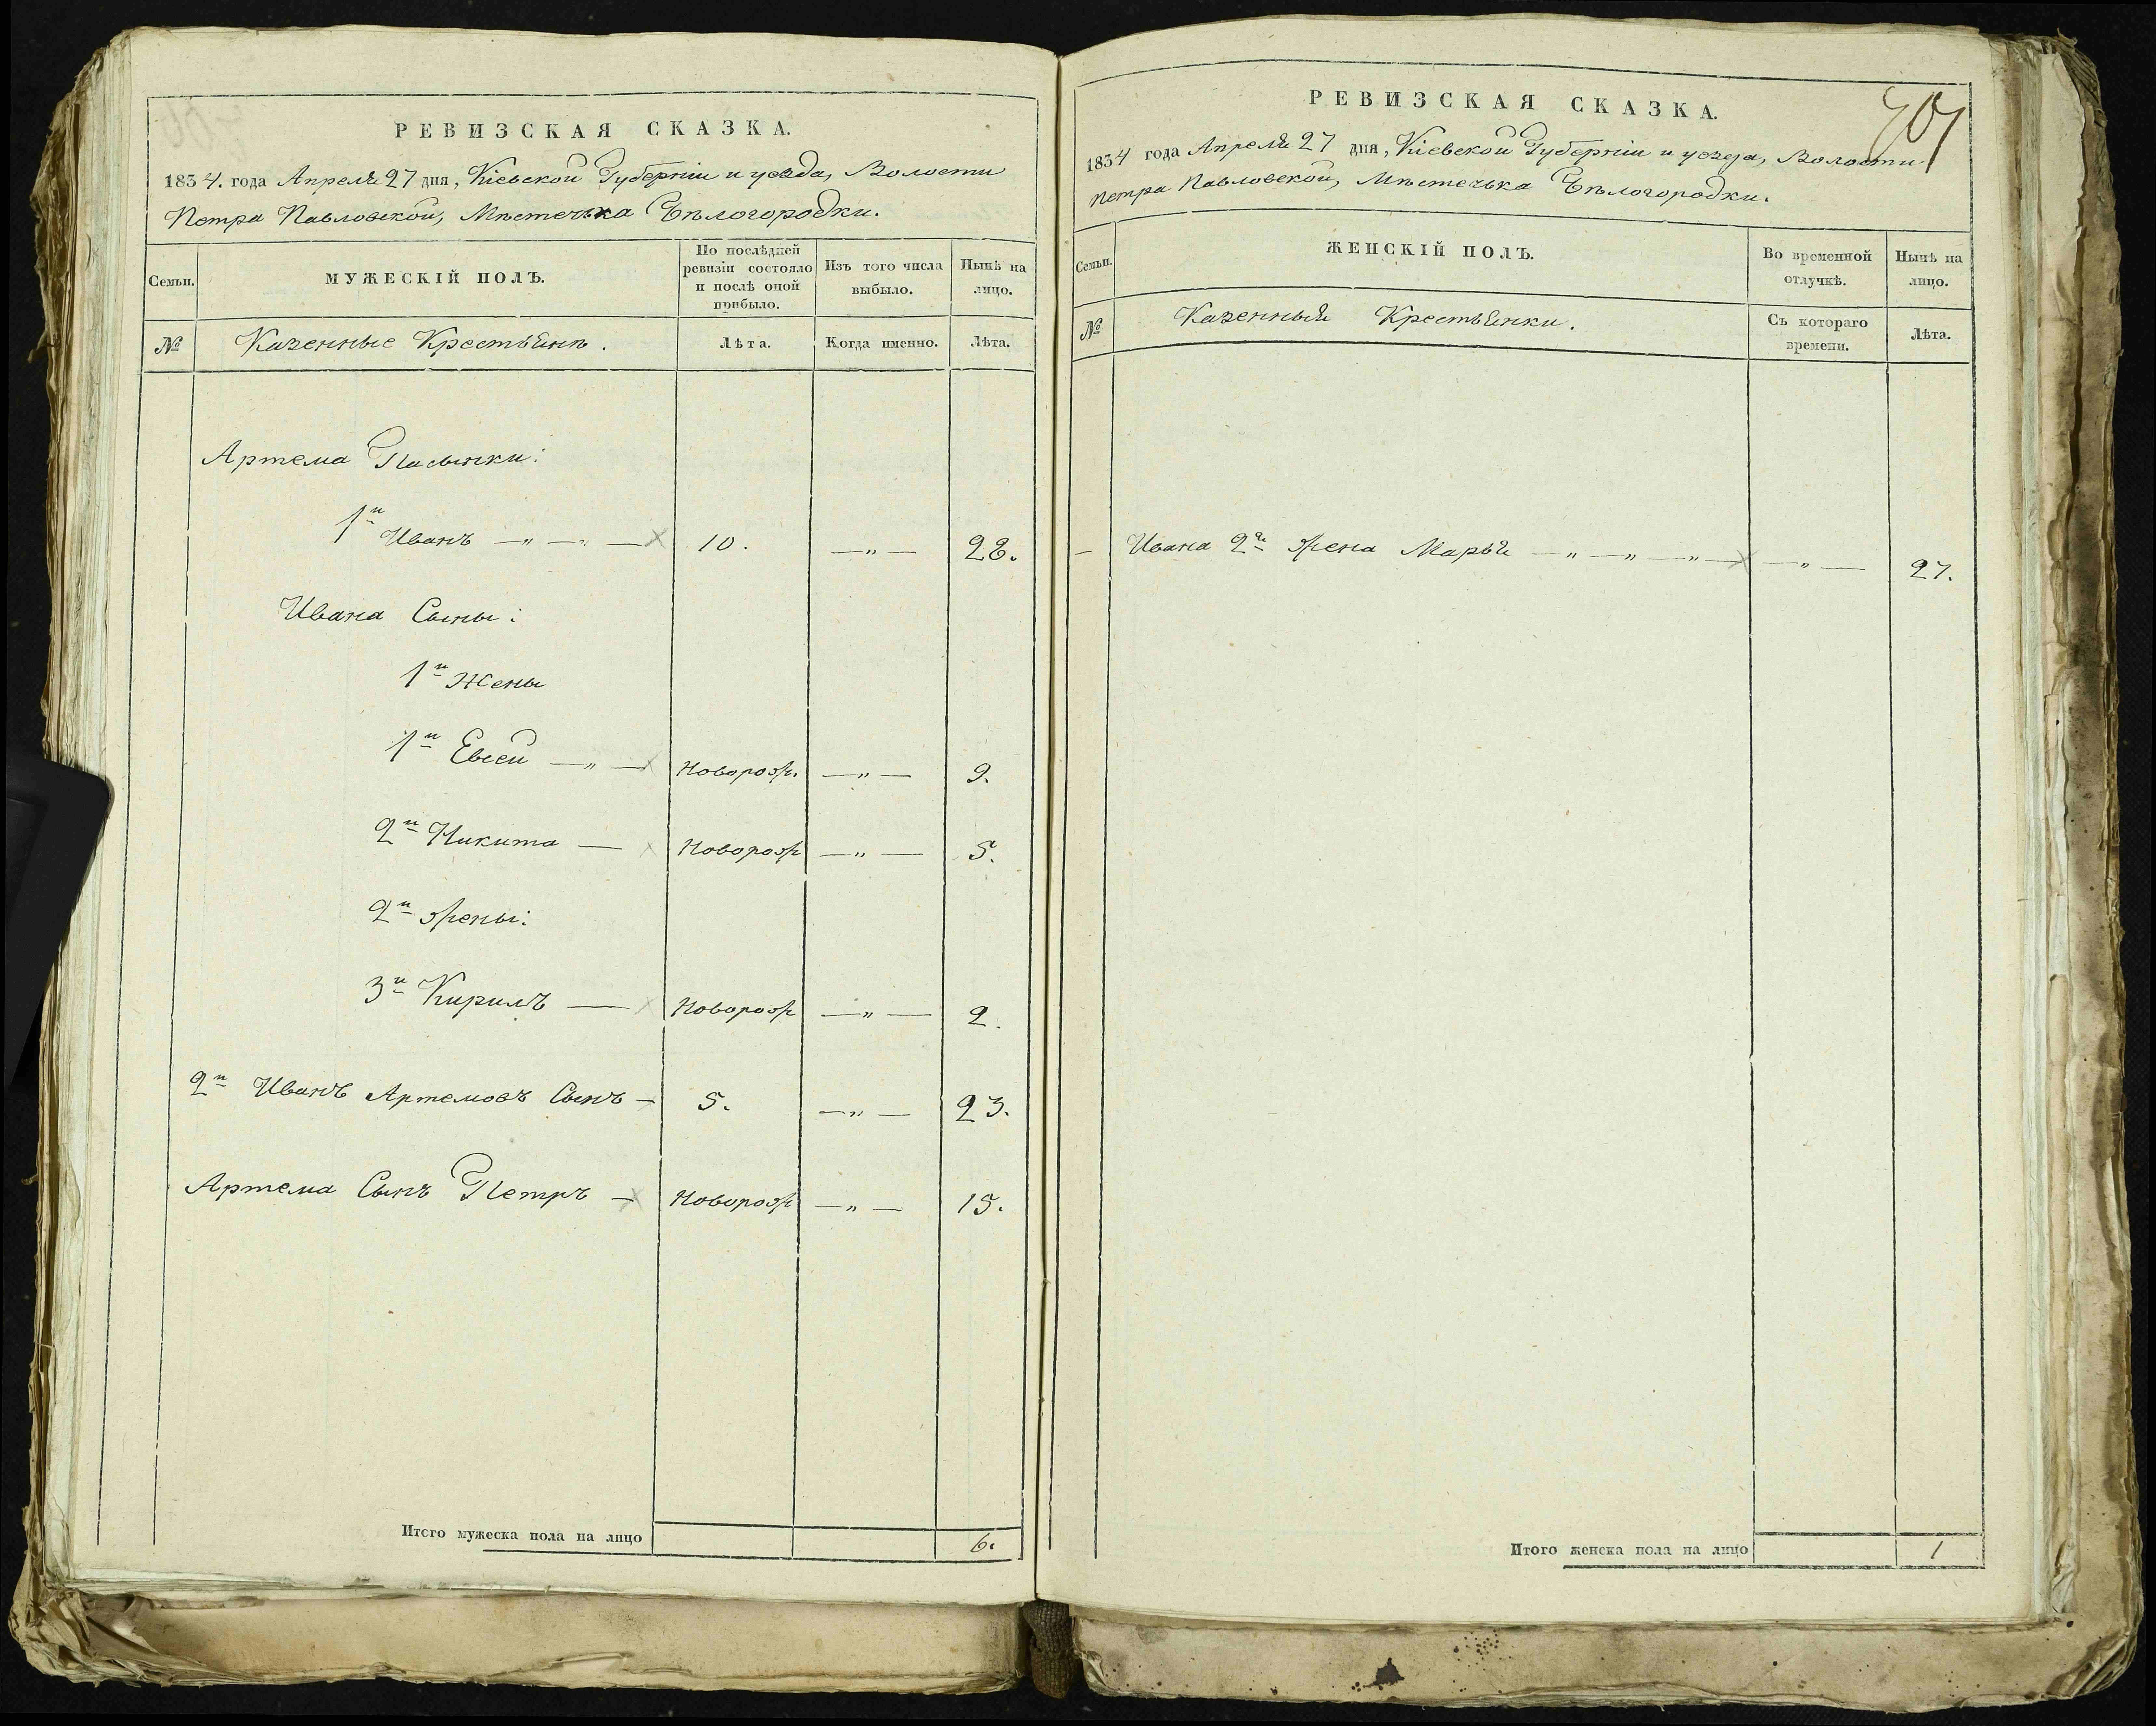 РЕВИЗСКАЯ СКАЗКА.
1834. года Апреля 27 дня, Кіевской Губерніи и уезда, Волости
Петра Павловской, Мѣстечька Бѣлогородки.
Семьи.
МУЖЕСКІЙ ПОЛЪ.
По послѣдней ревизіи состояло и послѣ оной прибыло.
Изъ того числа выбыло.
Нынѣ на лицо.
№
Казенные Крестьянѣ.
Лѣта.
Когда именно.
Лѣта.
Артема Пасынки:
1й Иванъ —„— —„ — 10. —„— 28.
Ивана Сыны:
1й Жены
1й Евсей —„— Новорож. —„— 9.
2й Никита — Новорож —„— 5.
2й Жены:
3й Кирилъ — Новорож —„— 2.
2й Иванъ Артемовъ Сынъ — 5. —„— 23.
Артема Сынъ Петръ — Новорож —„— 15.
Итого мужеска пола на лицо 6.
РЕВИЗСКАЯ СКАЗКА.
1834 года Апреля 27 дня, Кіевской Губерніи и уезда, Волости
Петра Павловской, Мѣстечька Бѣлогородки.
Семьи.
ЖЕНСКІЙ ПОЛЪ.
Во временной отлучкѣ.
Нынѣ на лицо.
№
Казенныя Крестьянки.
Съ котораго времени.
Лѣта.
— Ивана 2я Жена Марья —„—„—„— —„— 27.
Итого женска пола на лицо 1